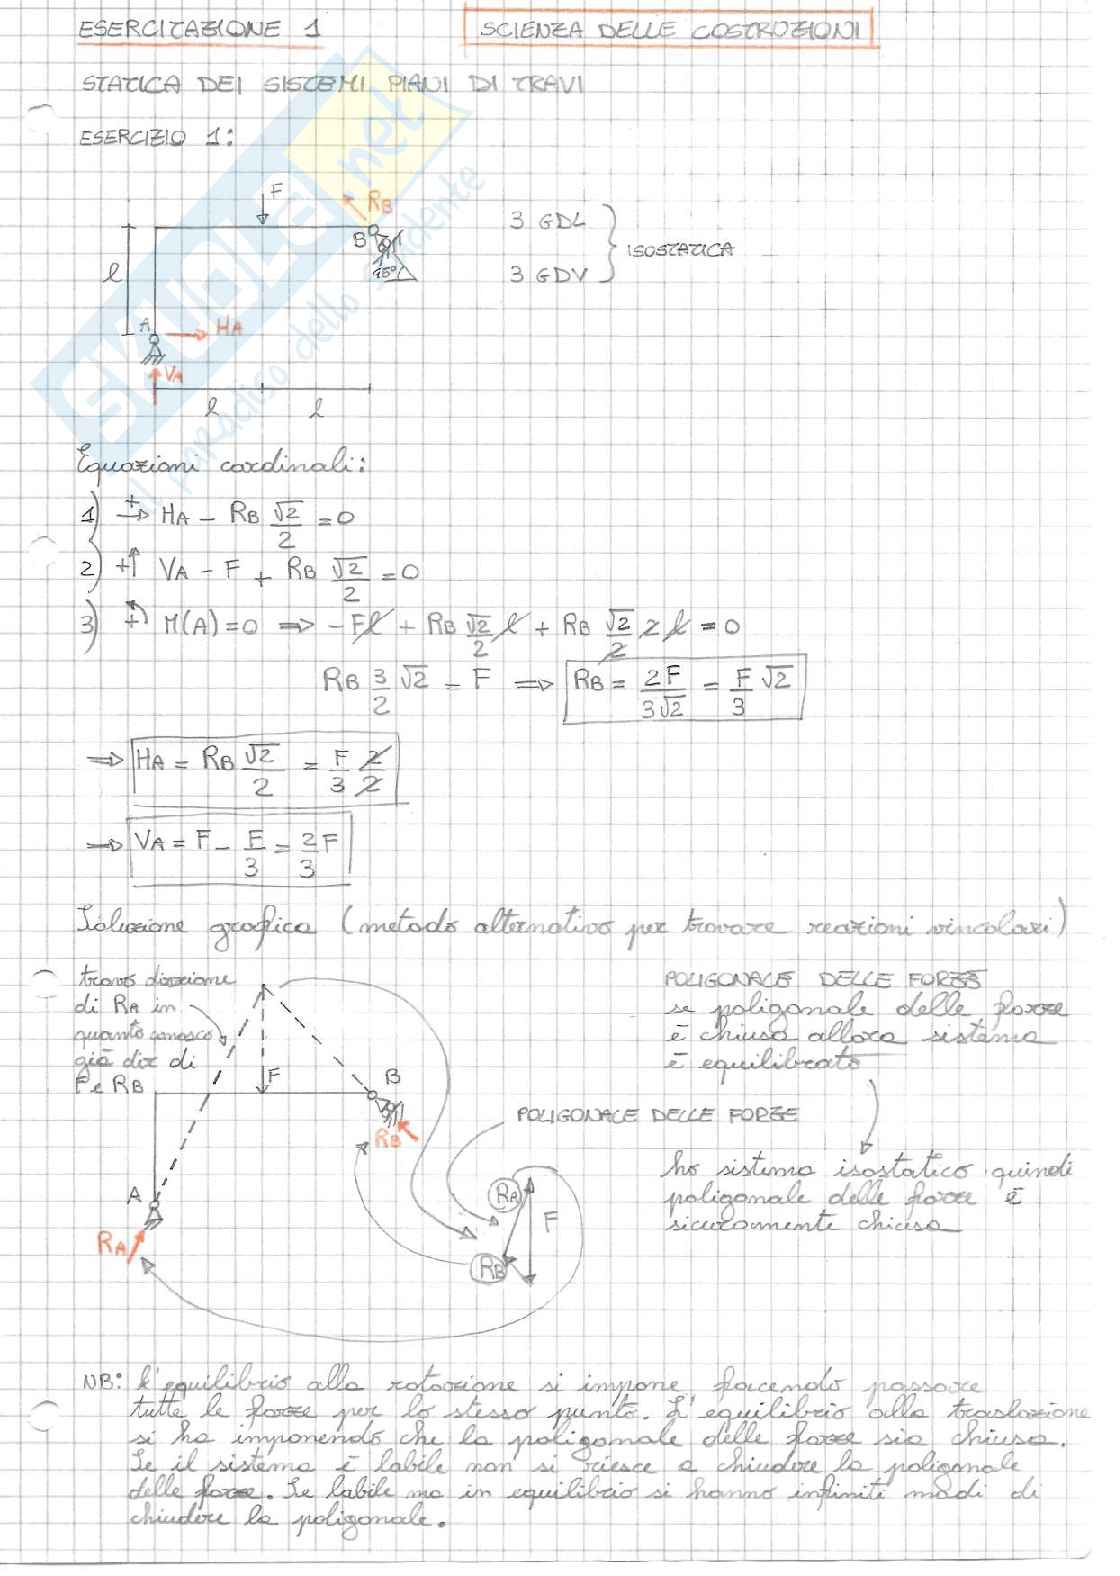 ESERCITAZIONE 1
SCIENZA DELLE COSTRUZIONI
STATICA DEI SISTEMI PIANI DI TRAVI
ESERCIZIO 1:
F
RB
B
45°
l
A
HA
VA
l
l
3 GDL
3 GDV
ISOSTATICA
SKUOLA.net
il paradiso dello studente
Equazioni cardinali:
1) + → HA - RB √2/2 = 0
2) +↑ VA - F + RB √2/2 = 0
3) +↶ M(A) = 0 ⇒ - Fl + RB √2/2 l + RB √2/2 2l = 0
RB 3/2 √2 = F ⇒ RB = 2F/3√2 = F/3 √2
⇒ HA = RB √2/2 = F/3 2/2
⇒ VA = F - F/3 = 2/3 F
Soluzione grafica (metodo alternativo per trovare reazioni vincolari)
trovo direzione
di RA in
quanto conosco
già dir di
F e RB
F
B
RB
A
RA
POLIGONALE DELLE FORZE
se poligonale delle forze
è chiusa allora sistema
è equilibrato
POLIGONALE DELLE FORZE
RA
F
RB
ho sistema isostatico quindi
poligonale delle forze è
sicuramente chiusa
NB: L'equilibrio alla rotazione si impone facendo passare
tutte le forze per lo stesso punto. L'equilibrio alla traslazione
si ha imponendo che la poligonale delle forze sia chiusa.
Se il sistema è labile non si riesce a chiudere la poligonale
delle forze. Se labile ma in equilibrio si hanno infiniti modi di
chiudere la poligonale.